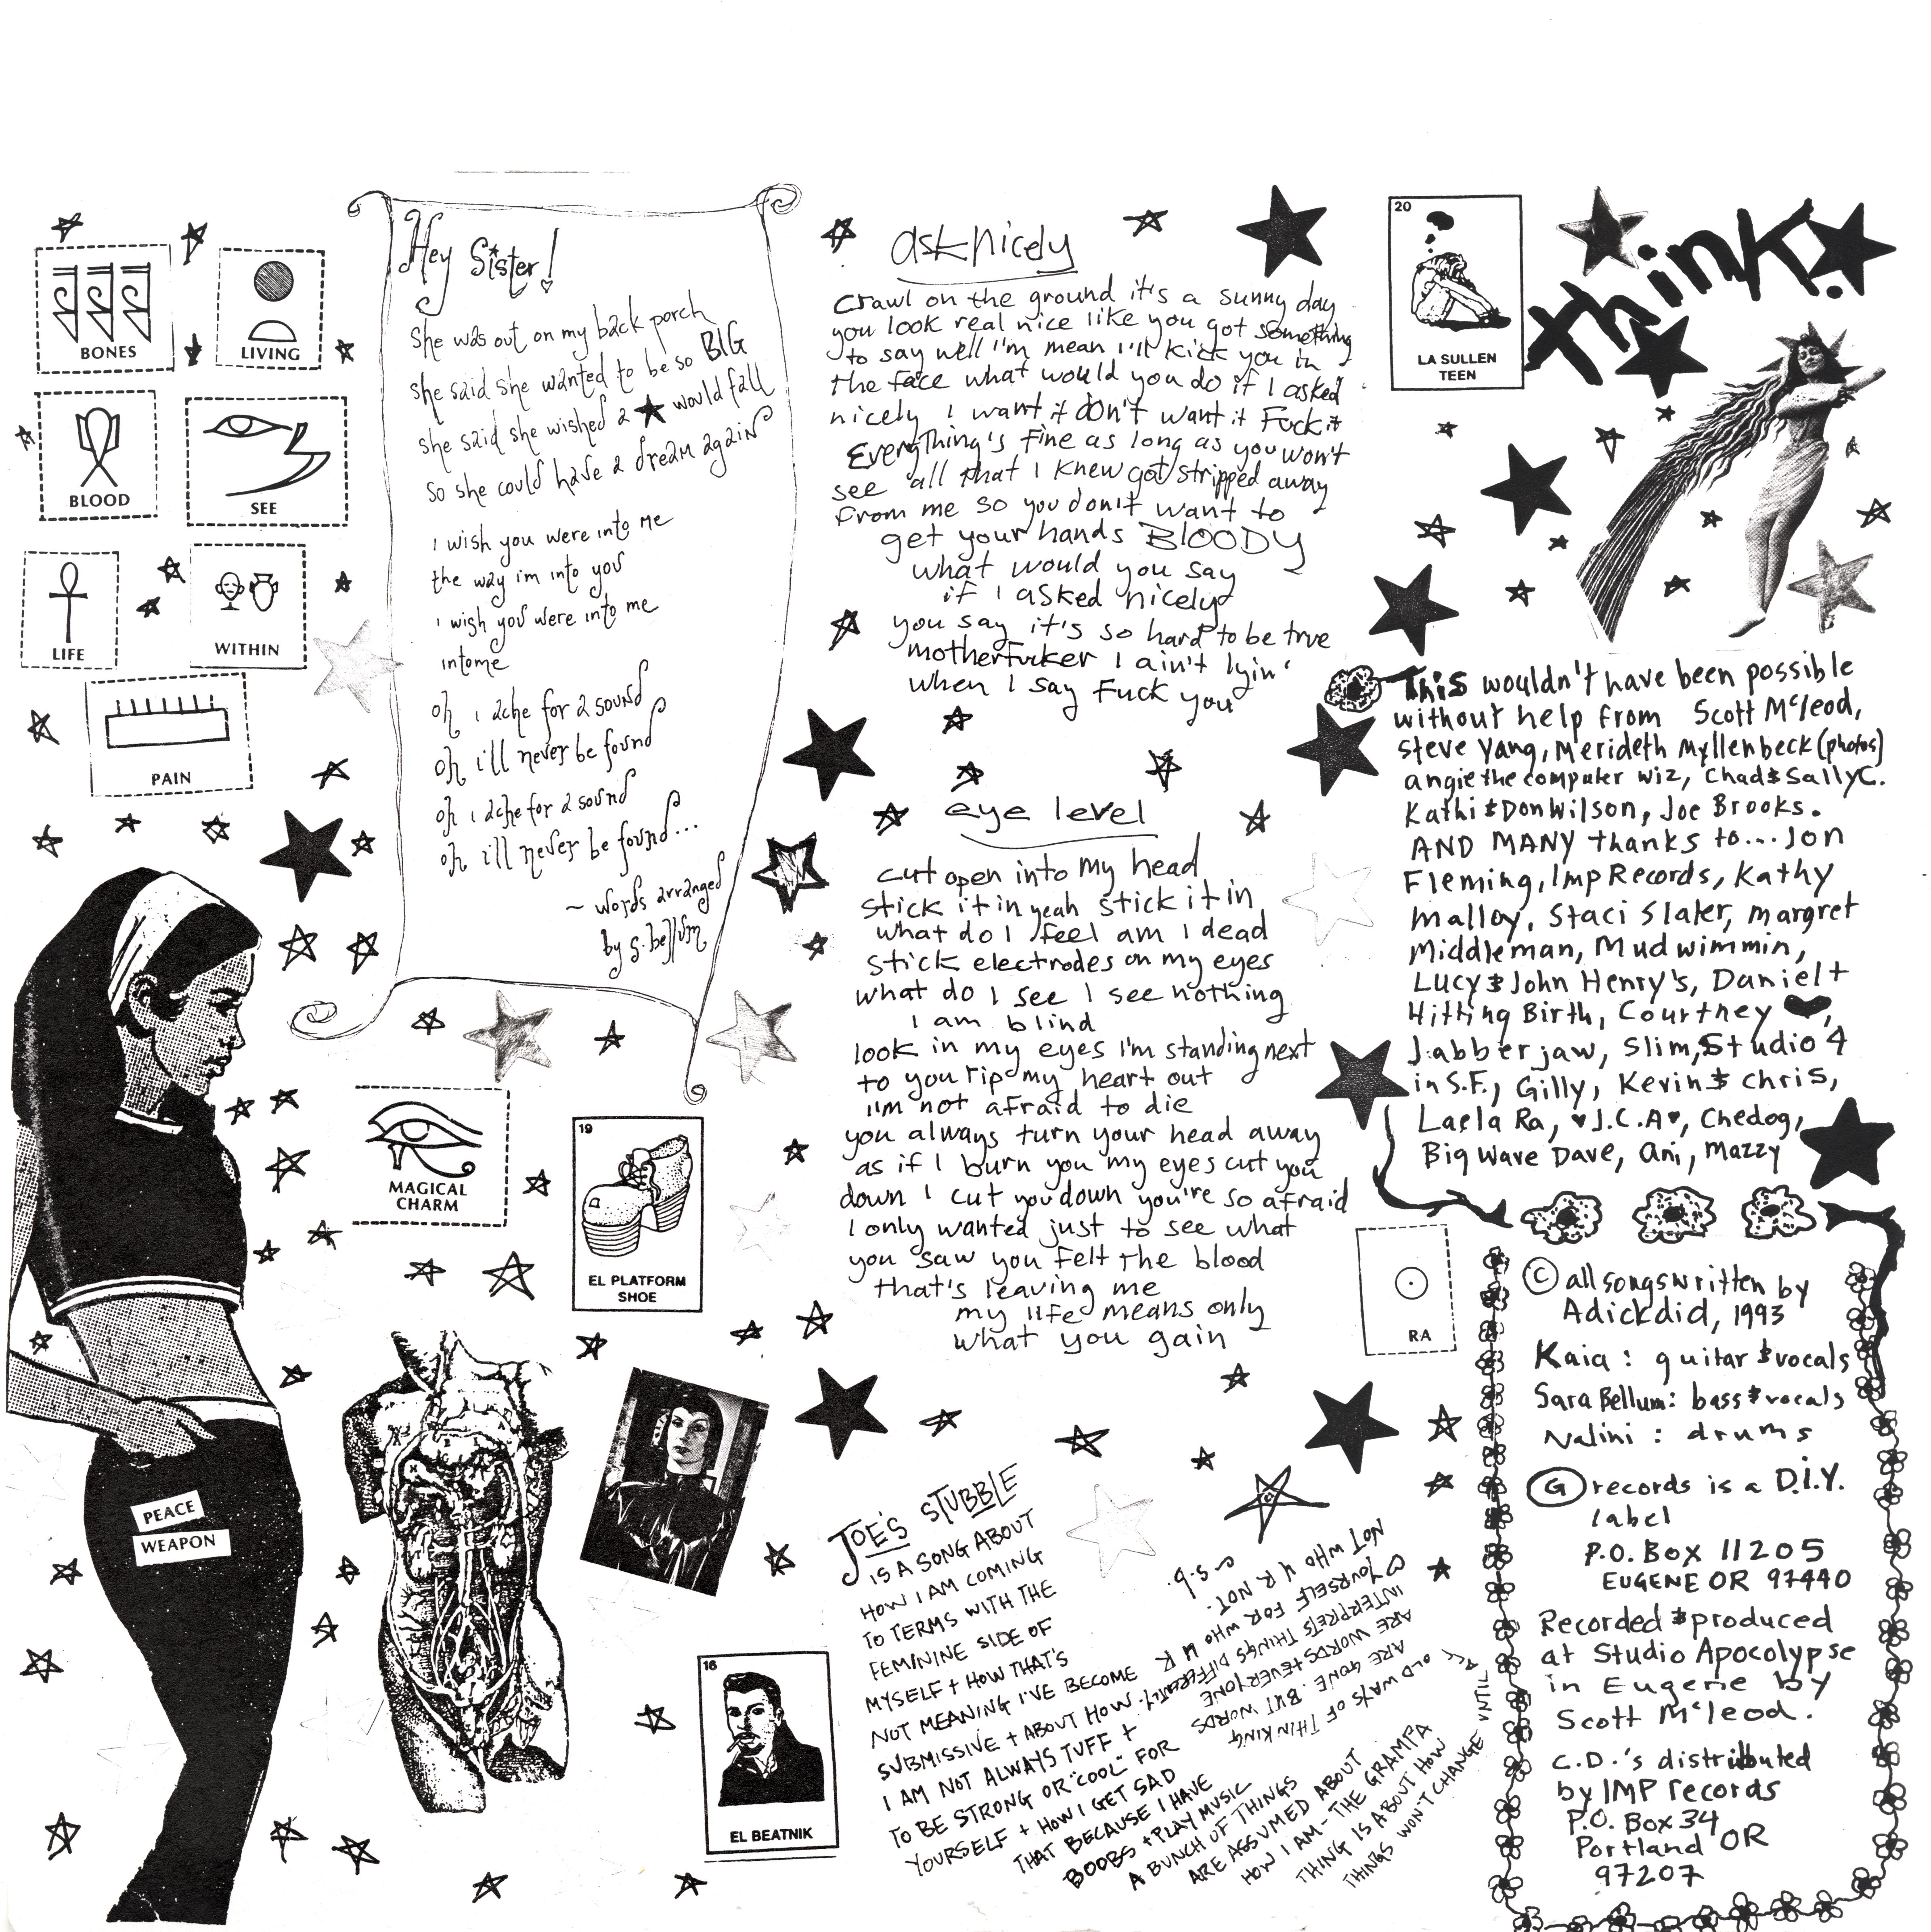 BONES
LIVING
BLOOD
SEE
LIFE
WITHIN
PAIN
Hey Sister!
She was out on my back porch
she said she wanted to be so BIG
she said she wished a ★ would fall
so she could have a dream again
I wish you were into me
the way im into you
I wish you were into me
intome
oh I ache for a sound
oh i'll never be found
oh I ache for a sound
oh i'll never be found...
~ words arranged
by s. bellum
MAGICAL
CHARM
19
EL PLATFORM
SHOE
PEACE
WEAPON
16
EL BEATNIK
ask nicely
Crawl on the ground it's a sunny day
you look real nice like you got something
to say well I'm mean I'll kick you in
the face what would you do if I asked
nicely I want it don't want it Fuck it
Everything's fine as long as you won't
see all that I knew got stripped away
from me so you don't want to
get your hands BLOODY
what would you say
if I asked nicely
you say it's so hard to be true
motherfucker I ain't lyin'
when I say Fuck you
eye level
cut open into my head
stick it in yeah stick it in
what do I feel am I dead
stick electrodes on my eyes
what do I see I see nothing
I am blind
look in my eyes I'm standing next
to you rip my heart out
I'm not afraid to die
you always turn your head away
as if I burn you my eyes cut you
down I cut you down you're so afraid
I only wanted just to see what
you saw you felt the blood
that's leaving me
my life means only
what you gain
JOE'S STUBBLE
IS A SONG ABOUT
HOW I AM COMING
TO TERMS WITH THE
FEMININE SIDE OF
MYSELF + HOW THAT'S
NOT MEANING I'VE BECOME
SUBMISSIVE + ABOUT HOW
I AM NOT ALWAYS TUFF +
TO BE STRONG OR "COOL" FOR
YOURSELF + HOW I GET SAD
THAT BECAUSE I HAVE
BOOBS + PLAY MUSIC
A BUNCH OF THINGS
ARE ASSUMED ABOUT
HOW I AM - THE GRAMPA
THING IS ABOUT HOW
THINGS WON'T CHANGE
UNTIL ALL
OLD WAYS OF THINKING
ARE GONE. BUT WORDS
ARE WORDS + EVERYONE
INTERPRETS THINGS DIFFERENTLY.
♡ YOURSELF FOR WHO U R
NOT WHO U R NOT.
s.b.
20
LA SULLEN
TEEN
think!
This wouldn't have been possible
without help from Scott McLeod,
Steve Yang, Merideth Myllenbeck (photos)
angie the computer wiz, Chad & Sally C.
Kathi & Don Wilson, Joe Brooks.
AND MANY thanks to... Jon
Fleming, Imp Records, Kathy
Malloy, Staci Slater, Margret
Middleman, Mudwimmin,
Lucy & John Henry's, Daniel +
Hitting Birth, Courtney ♥,
Jabberjaw, Slim, Studio 4
in S.F., Gilly, Kevin & Chris,
Laela Ra, ♥J.C.A♥, Chedog,
Big Wave Dave, Ani, Mazzy
RA
© all songs written by
Adickdid, 1993
Kaia: guitar & vocals
Sara Bellum: bass & vocals
Nalini: drums
G records is a D.I.Y.
label
P.O. Box 11205
EUGENE OR 97440
Recorded & produced
at Studio Apocolypse
in Eugene by
Scott McLeod.
C.D.'s distributed
by IMP records
P.O. Box 34
Portland OR
97207